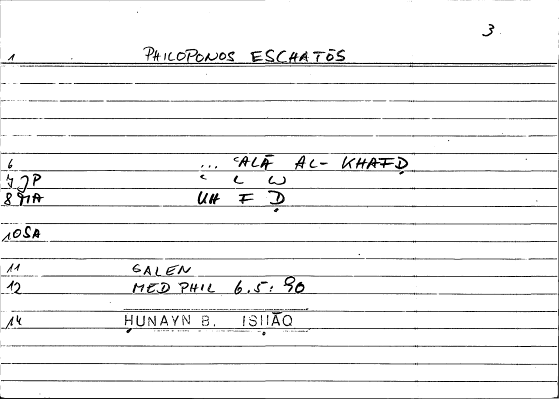 3
1 PHILOPONOS ESCHATŌS
6 ... ʿALĀ AL-KHAFḌ
7 JP ʿ L W
8 MA KH F Ḍ
10 SA
11 GALEN
12 MED PHIL 6.5: 90
14 ḤUNAYN B. ISḤĀQ